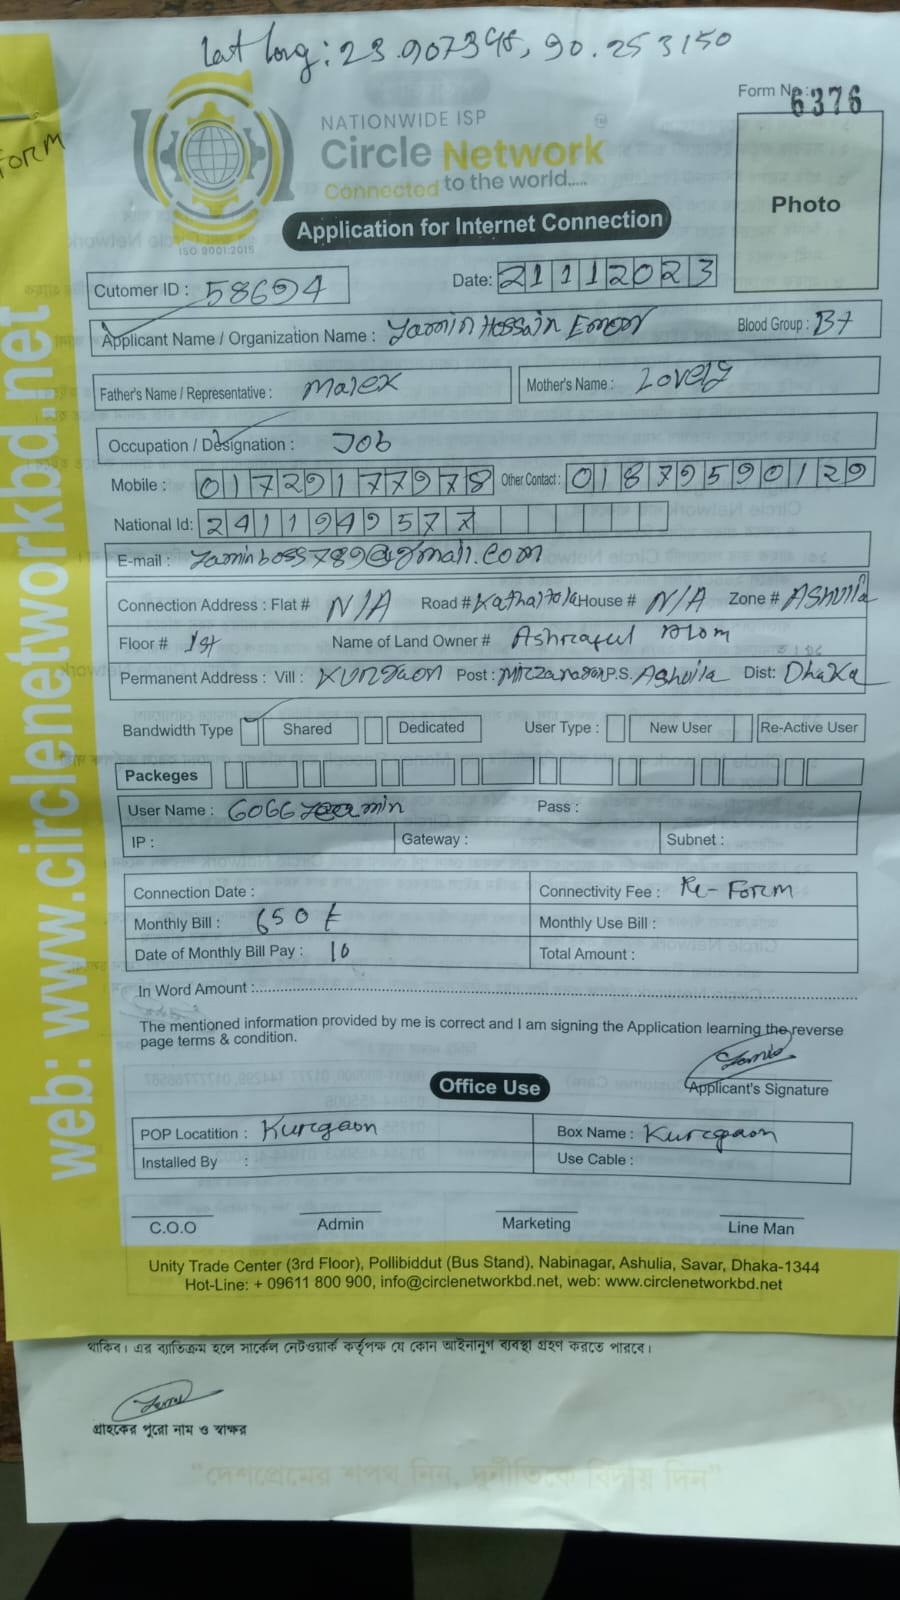 Lat long: 23.907398, 90.253150
Form No.: 6376
FORM
NATIONWIDE ISP
Circle Network
Connected to the world.....
ISO 9001:2015
Photo
Application for Internet Connection
Cutomer ID : 58694
Date: 21112023
Applicant Name / Organization Name : Yamin Hossain Emon
Blood Group : B+
Father's Name / Representative : Malek
Mother's Name : Lovely
Occupation / Designation : Job
Mobile : 01729177978 Other Contact : 01879590129
National Id: 2411949577
E-mail : Yaminboss789@gmail.com
Connection Address : Flat # N/A Road # Kathaltola House # N/A Zone # Ashulia
Floor # 1st Name of Land Owner # Ashraful Alom
Permanent Address : Vill : Kurgaon Post : Mirzanagar P.S. Ashulia Dist: Dhaka
Bandwidth Type Shared Dedicated User Type : New User Re-Active User
Packeges
User Name : Pass :
IP : Gateway : Subnet :
Connection Date : Connectivity Fee : Re-Form
Monthly Bill : 650 Monthly Use Bill :
Date of Monthly Bill Pay : 10 Total Amount :
In Word Amount :
The mentioned information provided by me is correct and I am signing the Application learning the reverse
page terms & condition.
Applicant's Signature
Office Use
POP Locatition : Kurgaon Box Name : Kurgaon
Installed By : Use Cable :
C.O.O Admin Marketing Line Man
Unity Trade Center (3rd Floor), Pollibiddut (Bus Stand), Nabinagar, Ashulia, Savar, Dhaka-1344
Hot-Line: + 09611 800 900, info@circlenetworkbd.net, web: www.circlenetworkbd.net
web: www.circlenetworkbd.net
থাকিব। এর ব্যতিক্রম হলে সার্কেল নেটওয়ার্ক কর্তৃপক্ষ যে কোন আইনানুগ ব্যবস্থা গ্রহণ করতে পারবে।
গ্রাহকের পুরো নাম ও স্বাক্ষর
"দেশপ্রেমের শপথ নিন, দুর্নীতিকে বিদায় দিন"